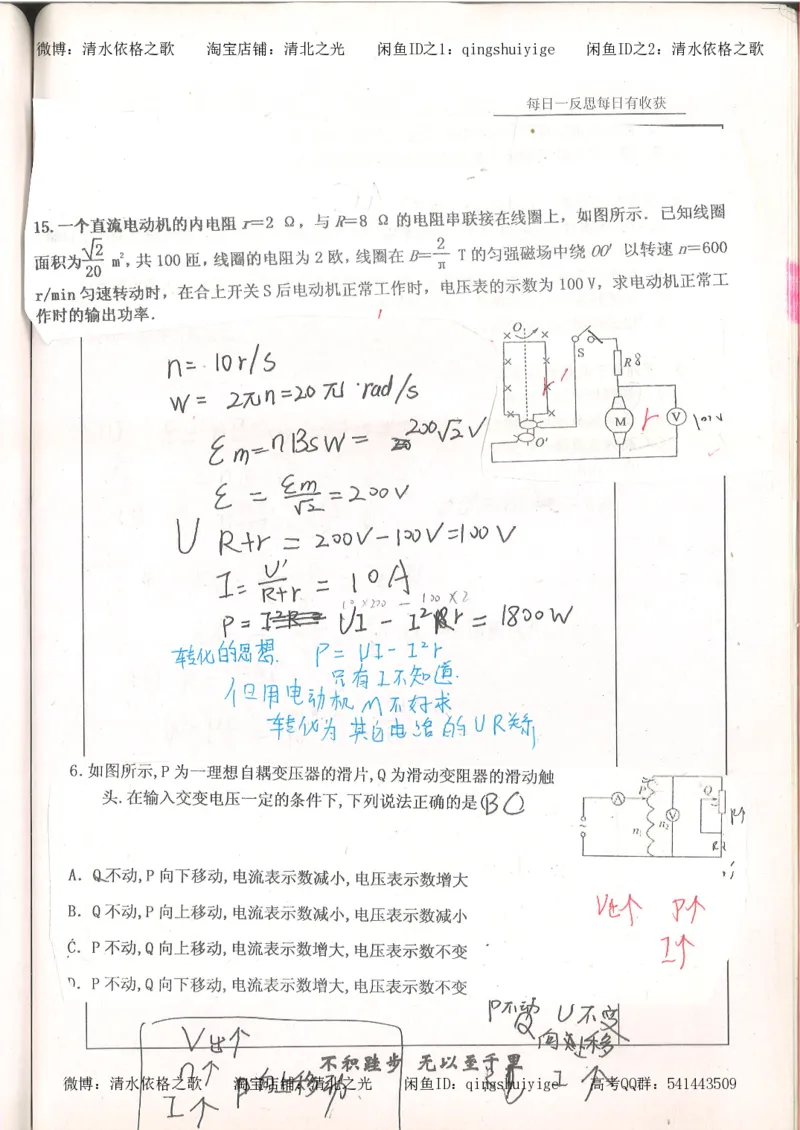 微博：清水依格之歌 淘宝店铺：清北之光 闲鱼ID之1：qingshuiyige 闲鱼ID之2：清水依格之歌
每日一反思每日有收获
15.一个直流电动机的内电阻 r=2 Ω，与 R=8 Ω 的电阻串联接在线圈上，如图所示．已知线圈
面积为 √2/20 m²,共 100 匝,线圈的电阻为 2 欧,线圈在 B=2/π T 的匀强磁场中绕 OO′ 以转速 n=600
r/min 匀速转动时，在合上开关 S 后电动机正常工作时，电压表的示数为 100 V，求电动机正常工
作时的输出功率．
n=10r/s
W= 2πn=20π rad/s
εm=nBSW= 200√2V
ε = εm/√2 =200V
U R+r = 200V-100V=100V
I= U'/R+r = 10A
10×200 - 100×2
P= UI - I²r = 1800W
转化的思想. P= UI-I²r
只有I不知道.
但用电动机M不好求
转化为其它电路的UR关系
O S R 8
r'
M r V 100V
O′
6.如图所示,P 为一理想自耦变压器的滑片,Q 为滑动变阻器的滑动触
头.在输入交变电压一定的条件下,下列说法正确的是(BC
A P V Q
n₁ n₂ R↑
A．Q 不动,P 向下移动,电流表示数减小,电压表示数增大
B．Q 不动,P 向上移动,电流表示数减小,电压表示数减小
C．P 不动,Q 向上移动,电流表示数增大,电压表示数不变
D．P 不动,Q 向下移动,电流表示数增大,电压表示数不变
V出↑ P↑
I↑
P不动 U不变
Q向上移
I ↑
V出↑
n↑ P向上移动
I↑
不积跬步 无以至千里
微博：清水依格之歌 淘宝店铺：清北之光 闲鱼ID：qingshuiyige 高考QQ群：541443509